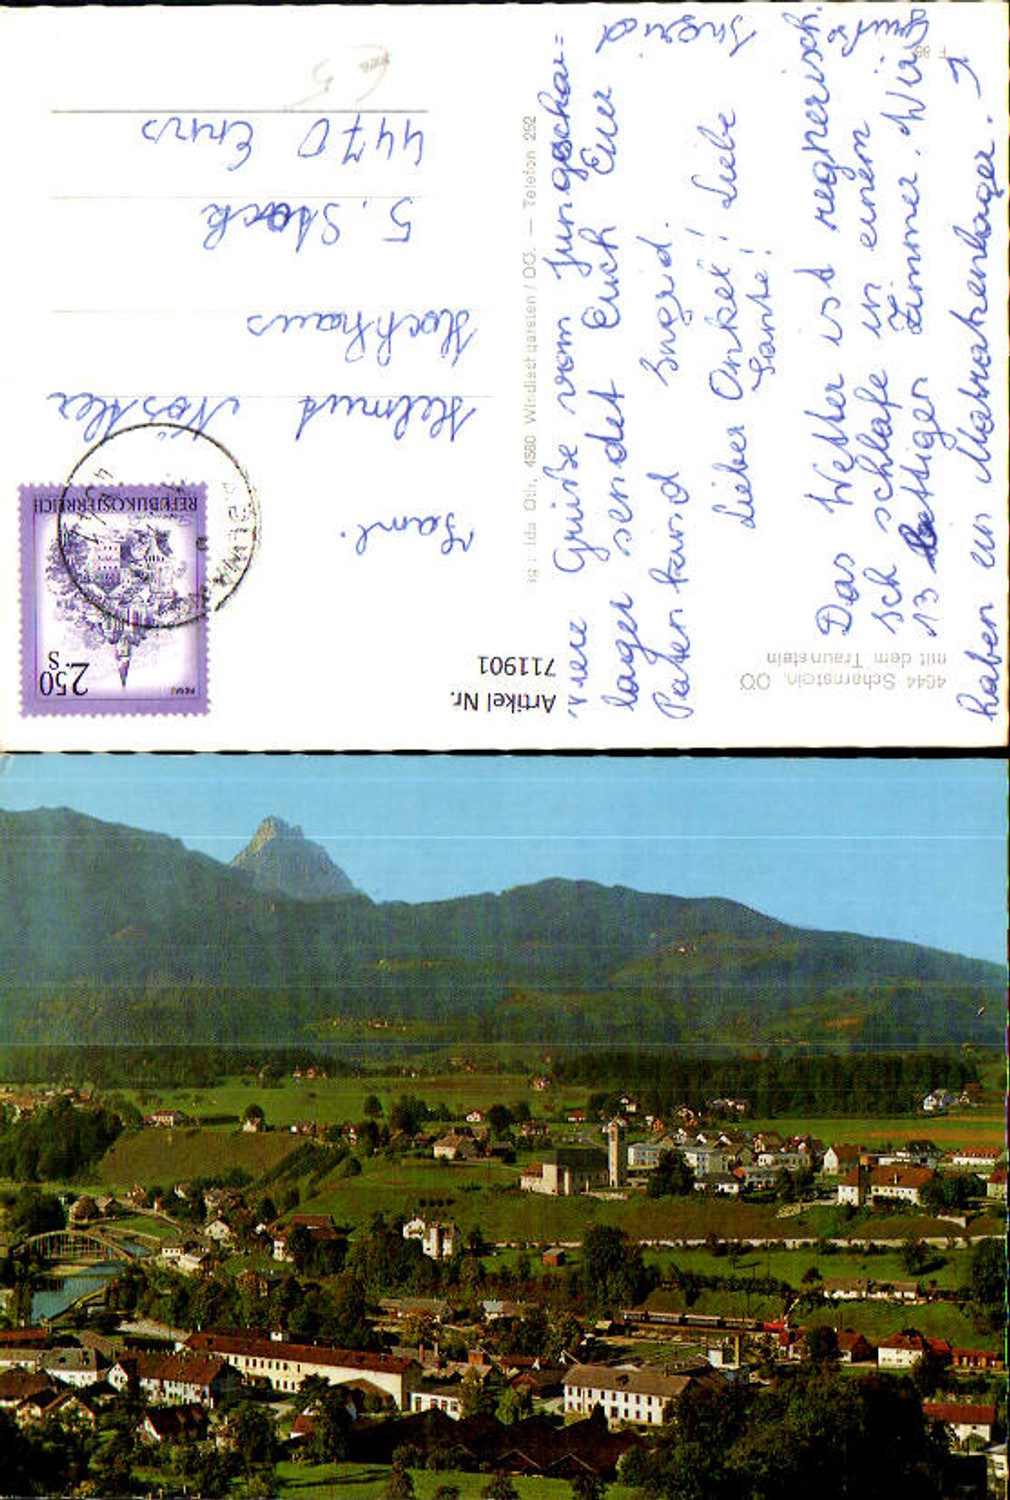 Liebe Gruß
Ingrid
Lieber Onkel! Liebe
Tante!
Das Wetter ist regnerisch.
Ich schlafe in einem
13 bettiger Zimmer. Wir
haben ein Matratzenlager.
Viele Grüße vom Jungschar=
lager sendet Euch Euer
Patenkind Ingrid.
4644 Scharnstein, OÖ
mit dem Traunstein
Ida Oth, 4580 Windischgarsten / OÖ. — Telefon 252
Artikel Nr.
711901
2.50
S
REPUBLIK ÖSTERREICH
Fam.
Helmut
Hochhaus
5. Stock
4470 Enns